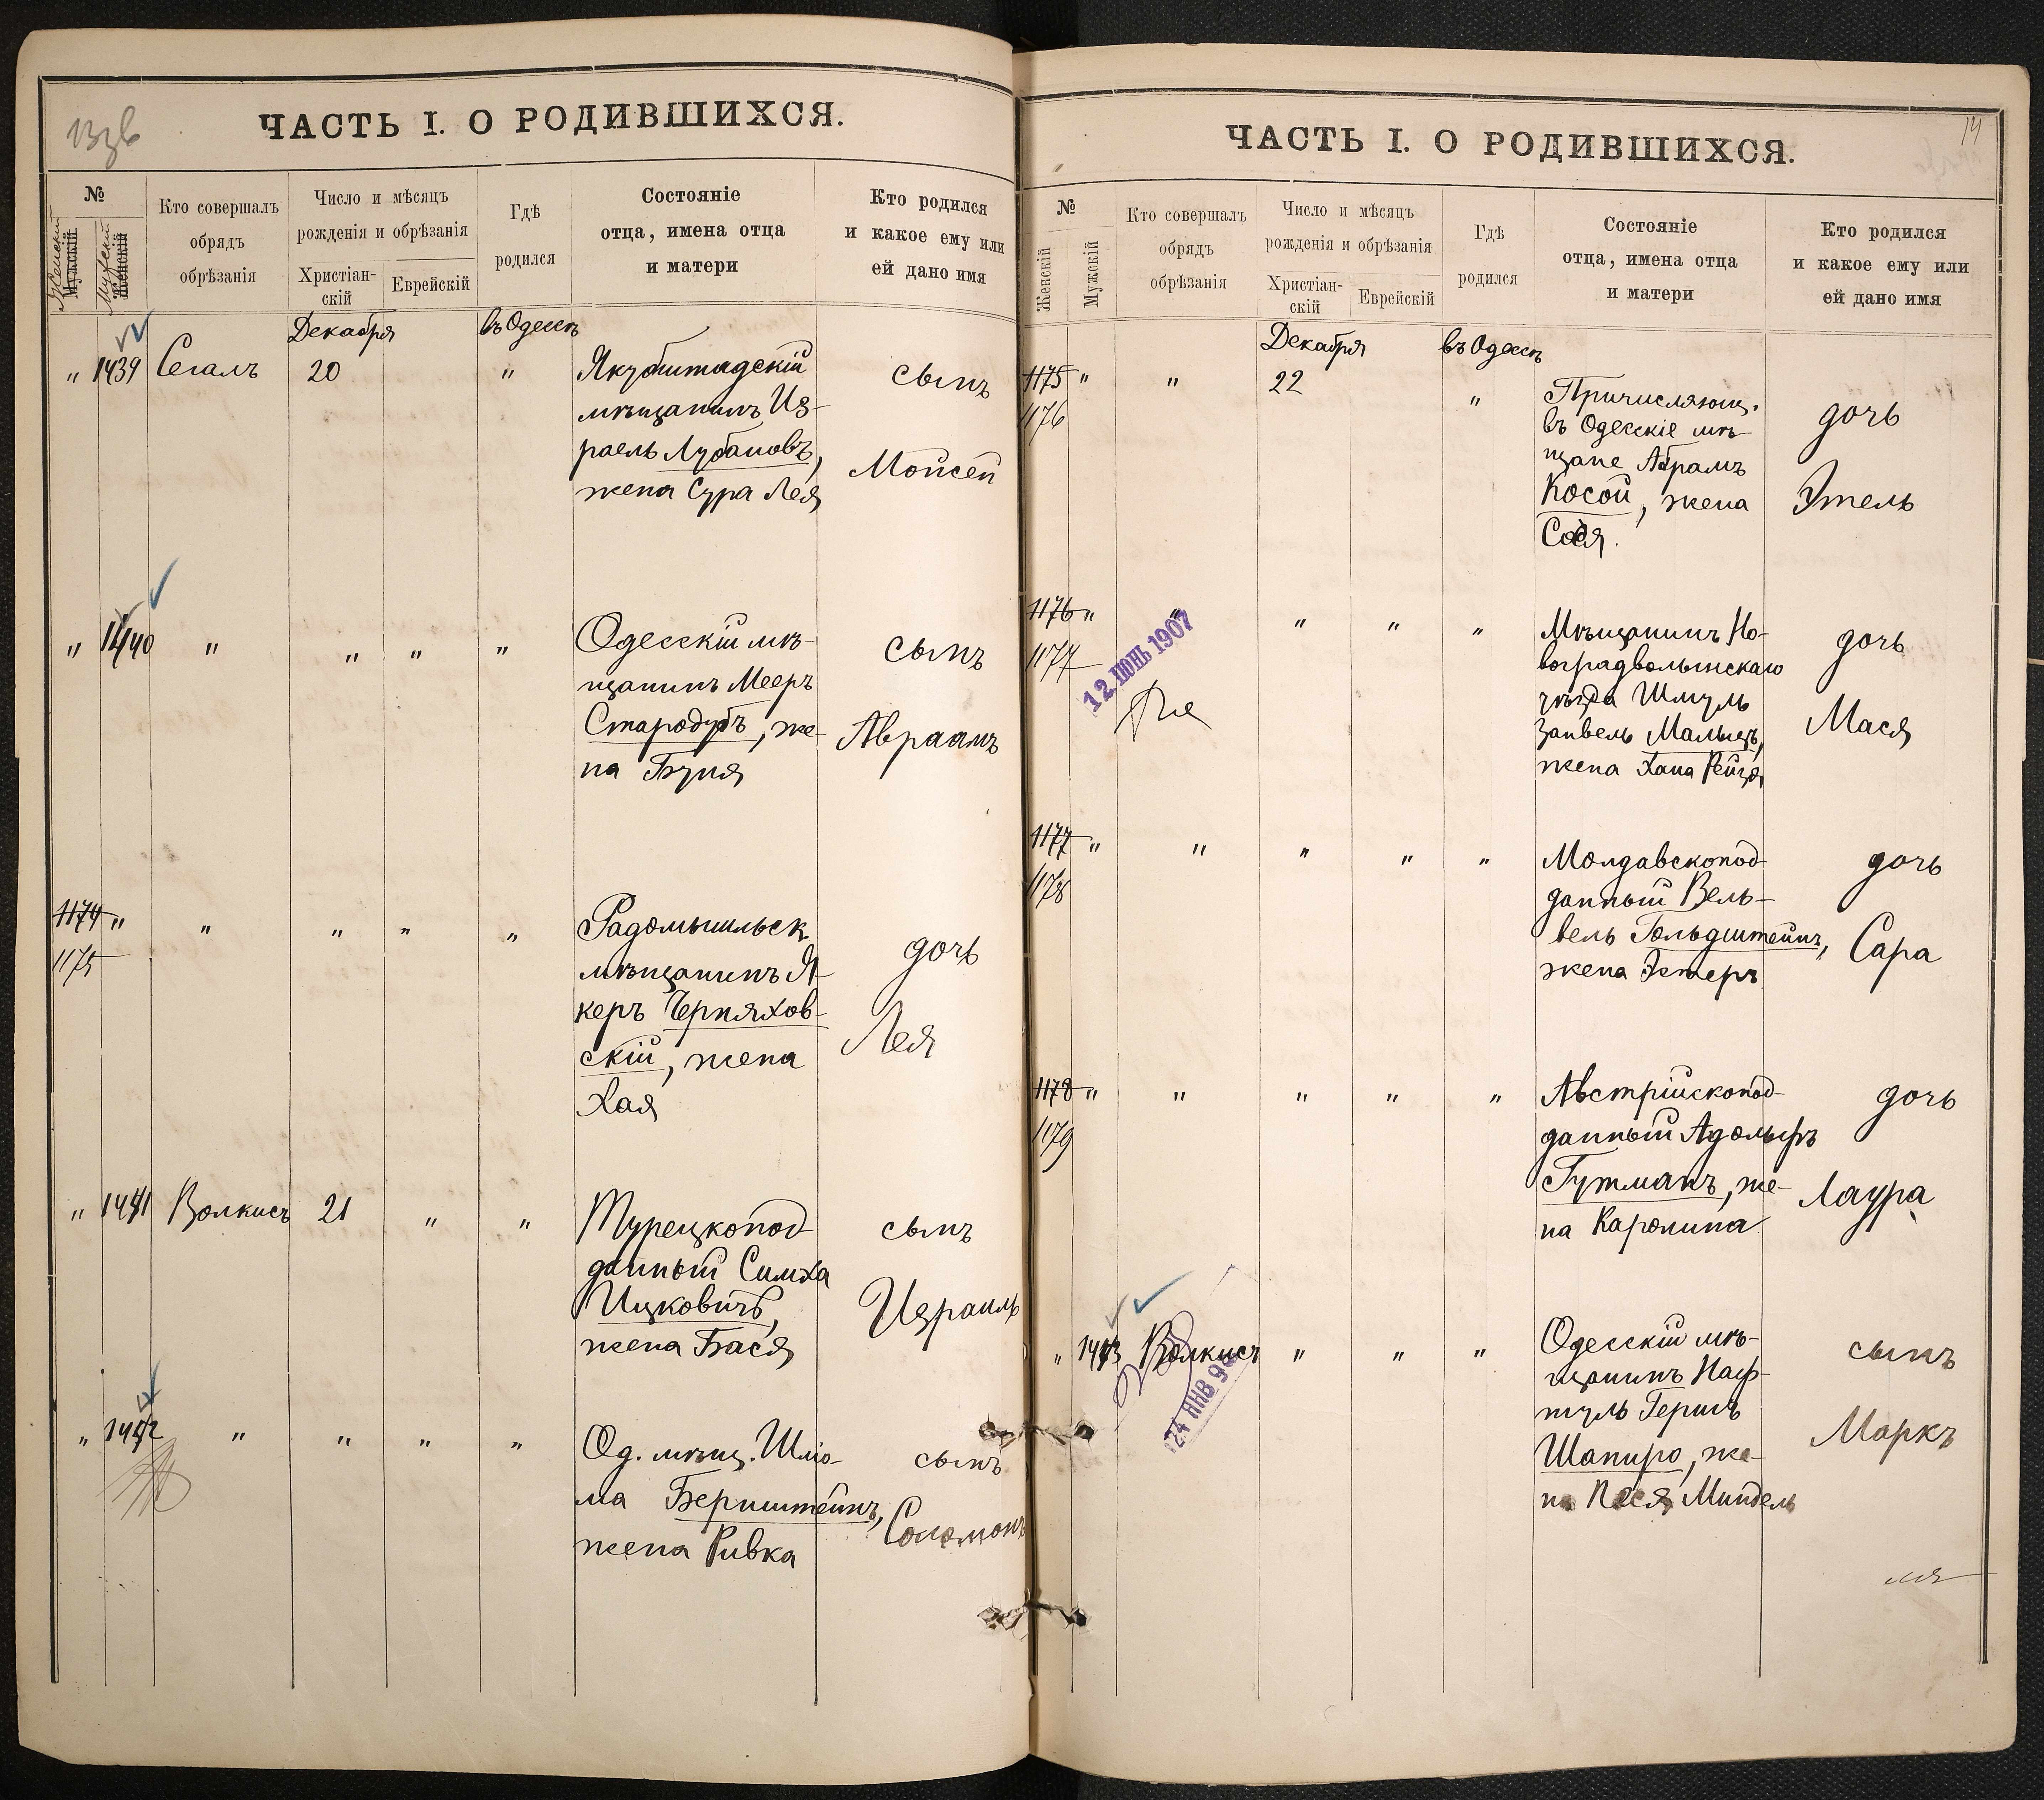 13 зв
ЧАСТЬ I. О РОДИВШИХСЯ.
№
Женскій
Мужскій
Мужскій
Женскій
Кто совершалъ
обрядъ
обрѣзанія
Число и мѣсяцъ
рожденія и обрѣзанія
Христіан-
скій
Еврейскій
Гдѣ
родился
Состояніе
отца, имена отца
и матери
Кто родился
и какое ему или
ей дано имя
Декабря
въ Одессѣ
" 1439 Сегалъ 20 "
Якубштадскій
мѣщанинъ Из-
раель Лубановъ,
жена Сура Лея
сынъ
Мойсей
" 1440 " " " "
Одесскій мѣ-
щанинъ Мееръ
Стародубъ, же-
на Буня
сынъ
Авраамъ
1174 " " " " "
1175
Радомысльск.
мѣщанинъ Я-
керъ Черняхов-
скій, жена
Хая
дочь
Лея
" 1441 Волкисъ 21 " "
Турецкопод-
данный Симха
Ицковичъ,
жена Бася
сынъ
Израиль
" 1442 " " " "
Од. мѣщ. Шліо-
ма Бернштейнъ,
жена Ривка
сынъ
Соломонъ
14
ЧАСТЬ I. О РОДИВШИХСЯ.
№
Женскій
Мужскій
Кто совершалъ
обрядъ
обрѣзанія
Число и мѣсяцъ
рожденія и обрѣзанія
Христіан-
скій
Еврейскій
Гдѣ
родился
Состояніе
отца, имена отца
и матери
Кто родился
и какое ему или
ей дано имя
Декабря
въ Одессѣ
1175 " " 22 "
1176
Причисляющ.
въ Одесскіе мѣ-
щане Абрамъ
Косой, жена
Сося.
дочь
Этель
1176 " " " " "
1177
12 ІЮНЬ 1907
Мѣщанинъ Но-
воградволынскаго
уѣзда Шмуль
Занвель Малыцъ,
жена Хана Рейзя
дочь
Мася
1177 " " " " "
1178
Молдавскопод-
данный Вель-
вель Гольдштейнъ,
жена Эстеръ
дочь
Сара
1178 " " " " "
1179
Австрійскопод-
данный Адольфъ
Гутманъ, же-
на Каролина
дочь
Лаура
" 1443 Волкисъ " " "
24 ЯНВ 9
Одесскій мѣ-
щанинъ Наф-
туль Гершъ
Шапиро, же-
на Песя Миндель
сынъ
Маркъ